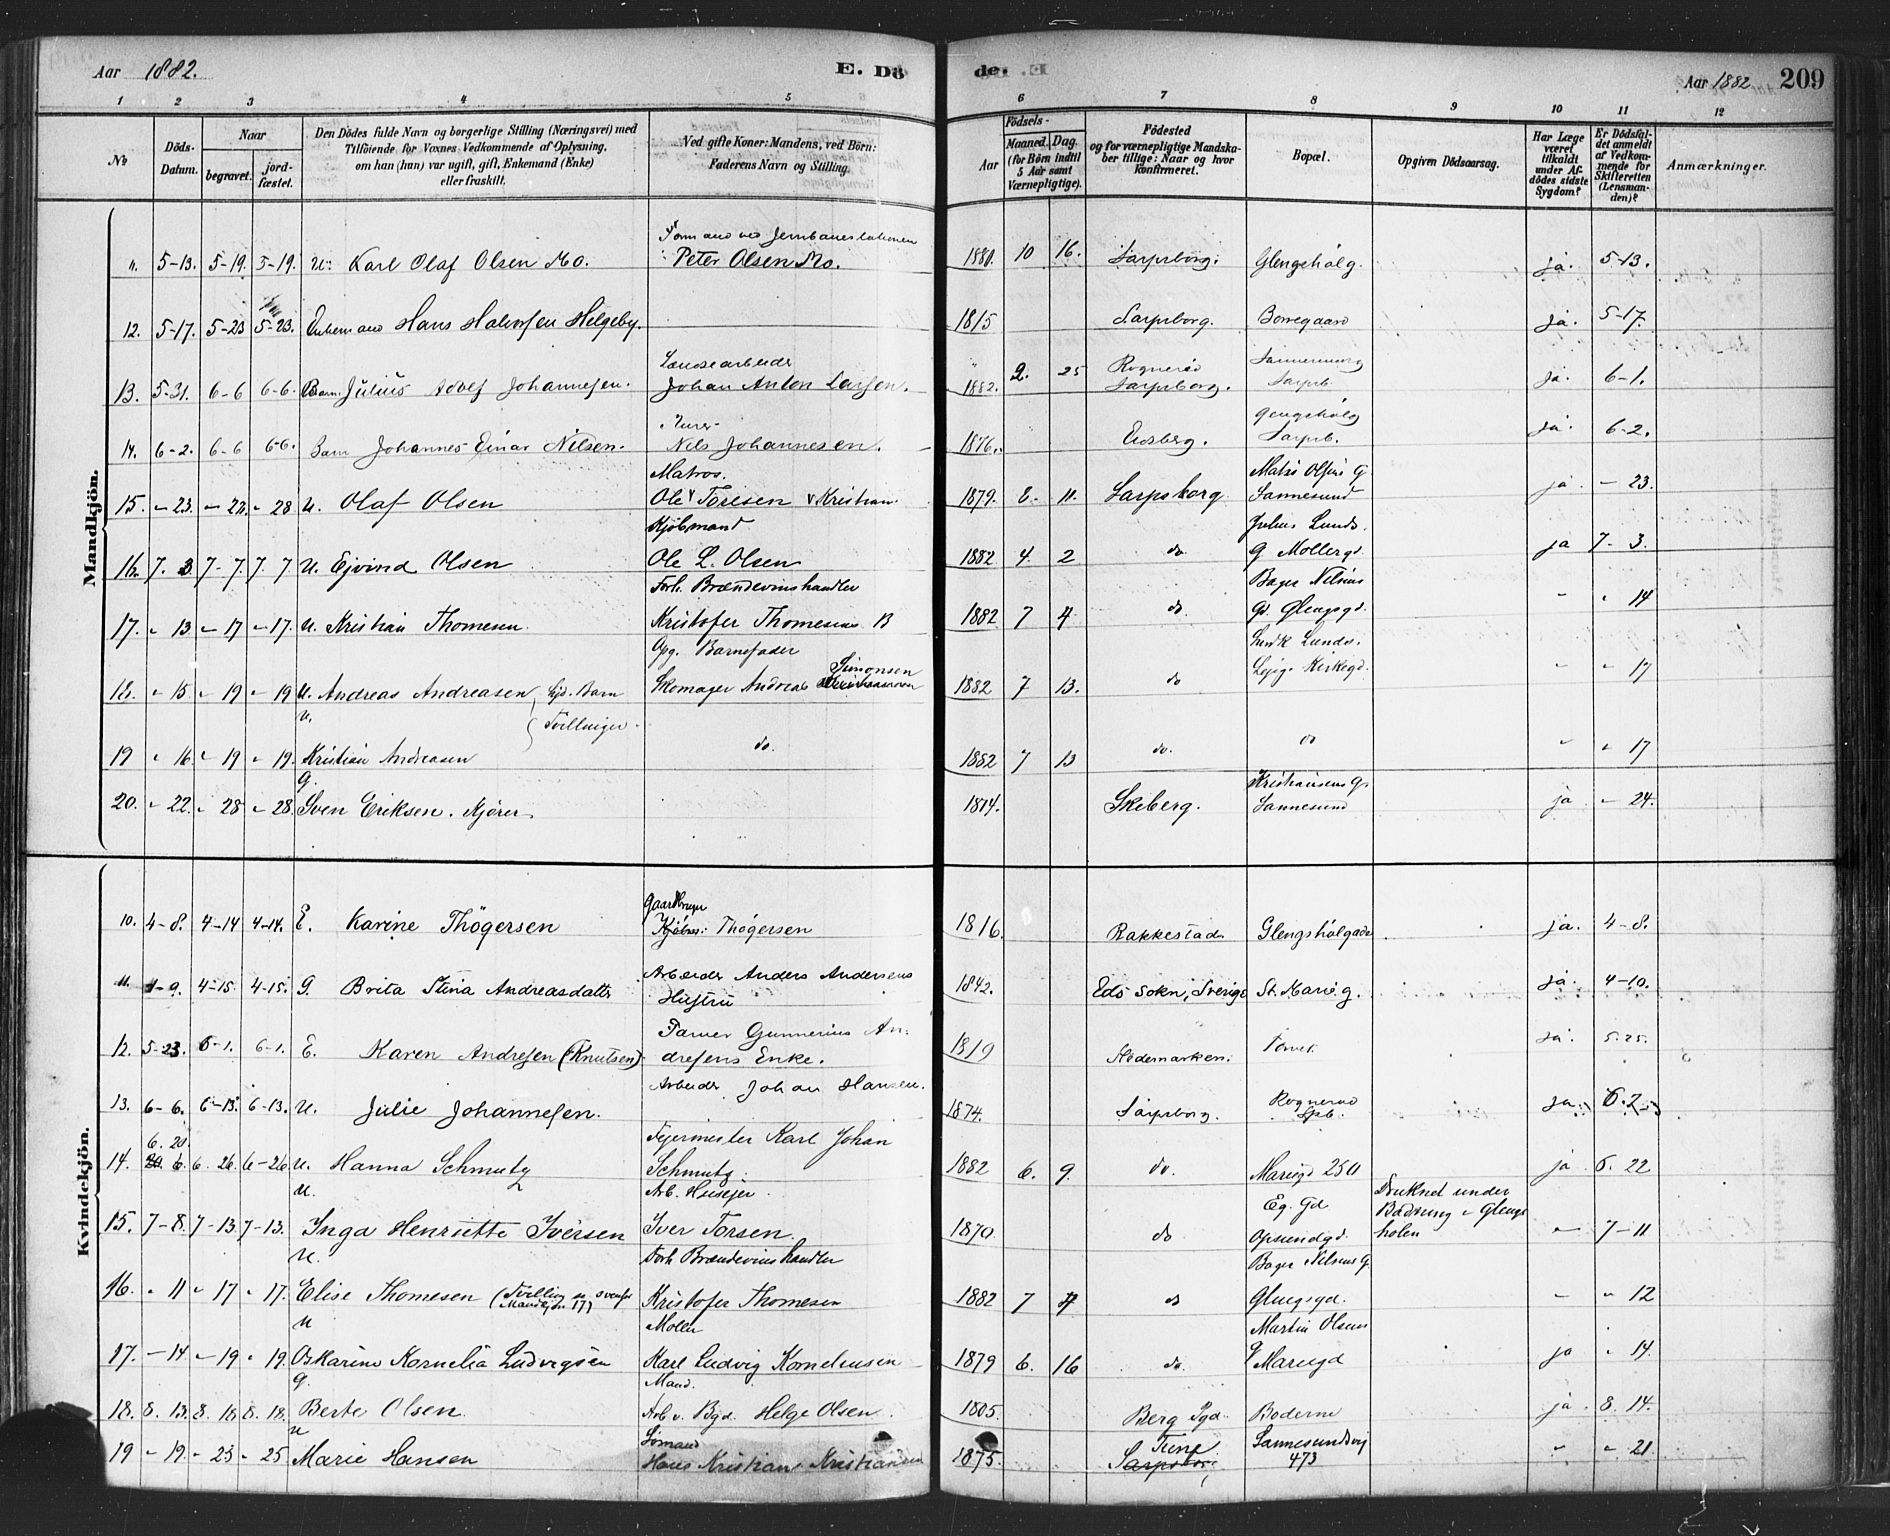 Aar 1882. E. Dö de. Aar 1882 209
1 2 3 4 5 6 7 8 9 10 11 12
No
Döds-Datum.
Naar
begravet.
jordfæstet.
Den Dödes fulde Navn og borgerlige Stilling (Næringsvei) med
Tilföiende for Voxnes Vedkommende af Oplysning,
om han (hun) var ugift, gift, Enkemand (Enke)
eller fraskilt.
Ved gifte Koner: Mandens, ved Börn:
Faderens Navn og Stilling.
Födsels-
Aar
Maaned Dag
(for Börn indtil
5 Aar samt
Værnepligtige).
Födested
og for værnepligtige Mandskaber tillige: Naar og hvor
konfirmeret.
Bopæl.
Opgiven Dödsaarsag.
Har Læge
været
tilkaldt
under Afdödes sidste
Sygdom?
Er Dödsfaldet anmeldt
af Vedkommende for
Skifteretten
(Lensmanden)?
Anmærkninger.
Mandkjön.
Formand ved Jernbanestationen
11. 5-13. 5-19. 5-19. U. Karl Olaf Olsen Mo. Peter Olsen Mo. 1880. 10 16. Sarpsborg. Glengshölg. ja. 5-13.
12. 5-17. 5-23 5-23. Enkemand Hans Halvorsen Helgeby. 1815 Sarpsborg. Borregaard ja. 5-17.
Landsearbeider
13. 5-31. 6-6 6-6. Barn Julius Adolf Johannesen. Johan Anton Larsen. 1882. 2. 25 Rognerød Sarpsborg. Sarpsb. ja. 6-1.
14. 6-2. 6-6 6-6. Barn Johannes Einar Nilsen. Nils Johannesen. 1876. Eidsberg. Glengshølg Sarpsb. ja. 6-2.
Matros.
15. - 23. - 28. - 28 U. Olaf Olsen Ole Toresen 1879. 8. 11. Sarpsborg Sannesund ja. - 23.
Kjöbmand
16. 7. 3. 7- 7. 7 7 U. Ejvind Olsen Ole L. Olsen 1882 4. 2 do Julius Lunds. G. Mollergd. ja 7- 3.
Forh. Brændevinshandler
17. - 13 - 17 - 17. U. Kristian Thomesen. Kristofer Thomesen 1882 7 4 do Bager Nilsens Gd. Glengsgd. " - 14
Opg. Barnefader
18. - 15 - 19 - 19 U. Andreas Andreasen Skomager Andreas Simonsen 1882 7 13. do Lunds. Kirkegd. " " 17
Tvillinger.
19 - 16. - 19 - 19. U. Kristian Andreasen do. 1882 7 13 do. do " - 17
20. - 22. - 28 - 28. G. Sven Eriksen. Kjörer 1814. Skiberg. Kristiansens G. Sannesund ja - 24.
Kvindekjön.
Gaardbruger
10. 4-8. 4-14 4-14. E. Karine Thögersen Kjöbm: Thögersen 1816. Rakkestad. Glengshölgade ja. 4-8.
11. 4-9. 4-15. 4-15. G. Brita Stina Andreasdatter Arbeider Anders Andersens Hustru 1842. Eds Sokn, Sverige St. Marie g. ja. 4-10.
12. 5-23. 6-1. 6-1. E. Karen Andresen (Knutsen) Garver Gunnerius Andresens Enke. 1819 Rødemarken. Torvet. ja. 5-25.
13. 6-6. 6-13. 6-13. U. Julie Johannesen. Arbeider Johan Hansen. 1874. Sarpsborg. Rognerød Spb. ja.
14. 6. 20 6. 26. 6-26 U. Hanna Schmutz Fejermester Karl Johan Schmutz. 1882 6. 9. do. Mariegd 250 ja 6. 22
Arb. Huseier.
15. 7-8. 7-13 7-13. U. Inga Henriette Iversen Iver Torsen. 1870. do Eg. Gd Opsundgd. Druknet under Badning i Glengsholen - 7-11
Forh. Brændevinshandler
16. - 11 - 17 - 17. U. Elise Thomesen (Tvilling m. ovenfor Mandkjøn 17) Kristofer Thomesen 1882 7 4 do Bager Nilsens G. Glengsgd. " " 12
Moller
17. - 14 - 19 - 19. U Oskarine Kornelia Ludvigsen Karl Ludvig Korneliusen 1879 6. 16 do. Martin Olsens g Mariegd ja - 14.
Mand.
18. 8. 13. 8. 18. 8. 18. G. Berte Olsen Arb. v. Bgd. Helge Olsen. 1805. Berg Pgd. Boderne ja. 8. 14.
Sømand
19 - 19. - 23 - 25 U Marie Hansen Hans Kristian Kristiansen 1875. Tune Sarpsborg Sannesundsvej 473 " " 21.